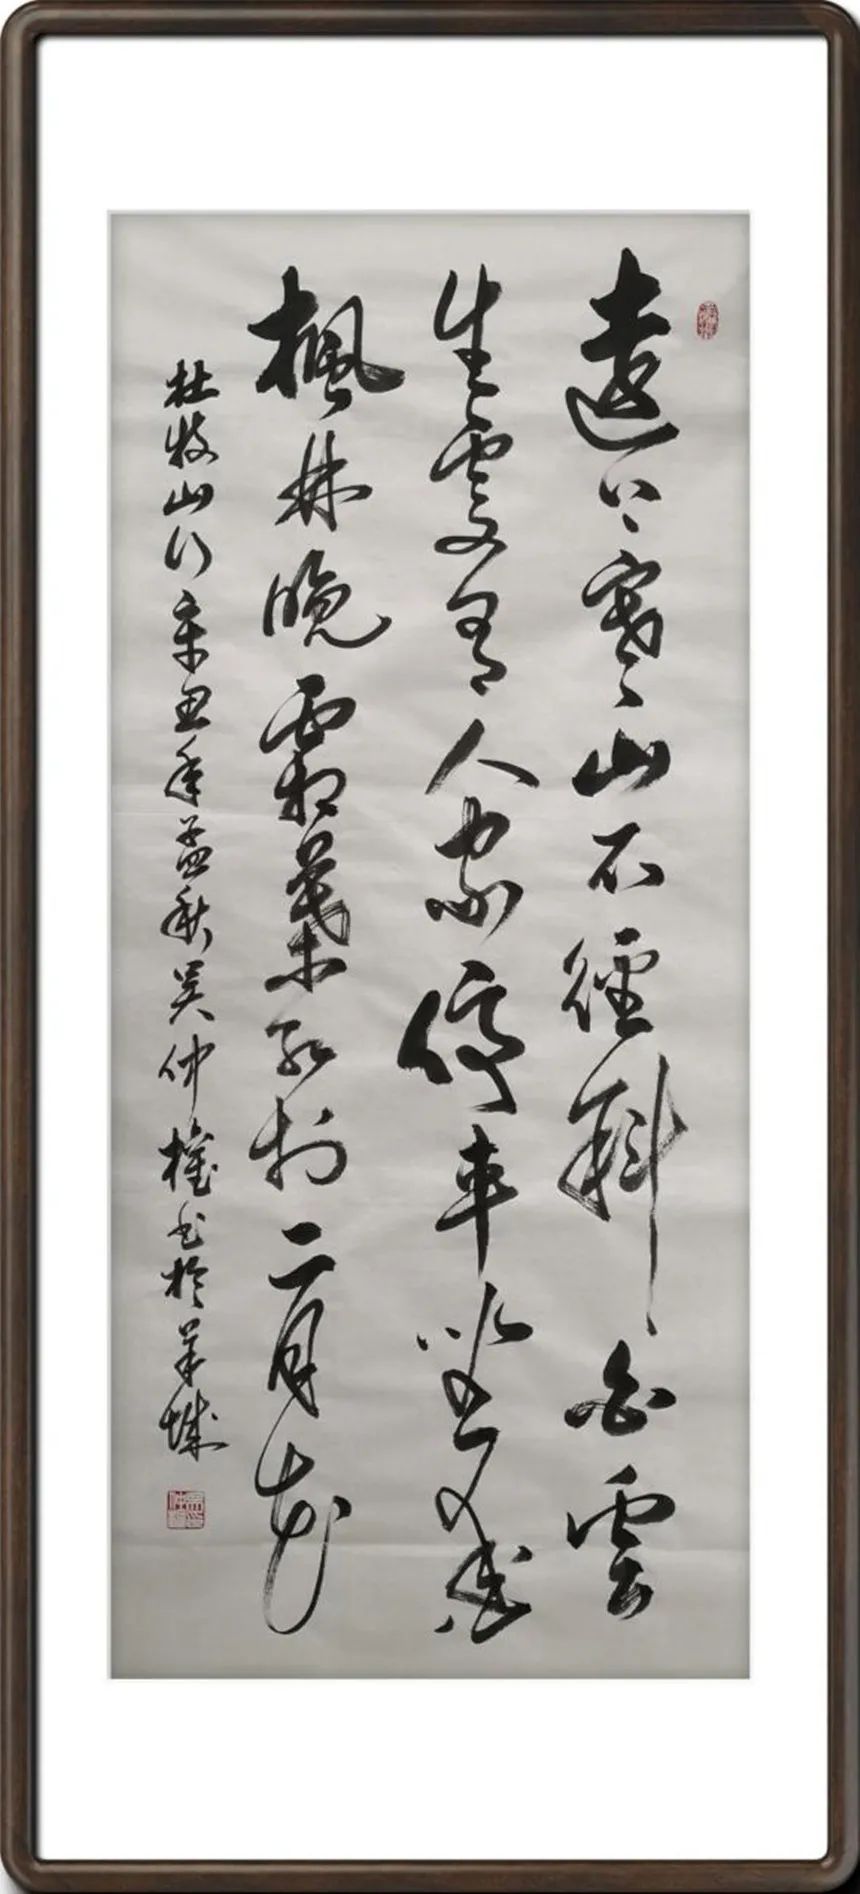 遠上寒山石徑斜白雲
生處有人家停車坐愛
楓林晚霜葉紅於二月花
杜牧山行辛丑年孟秋吴仲權书於羊城